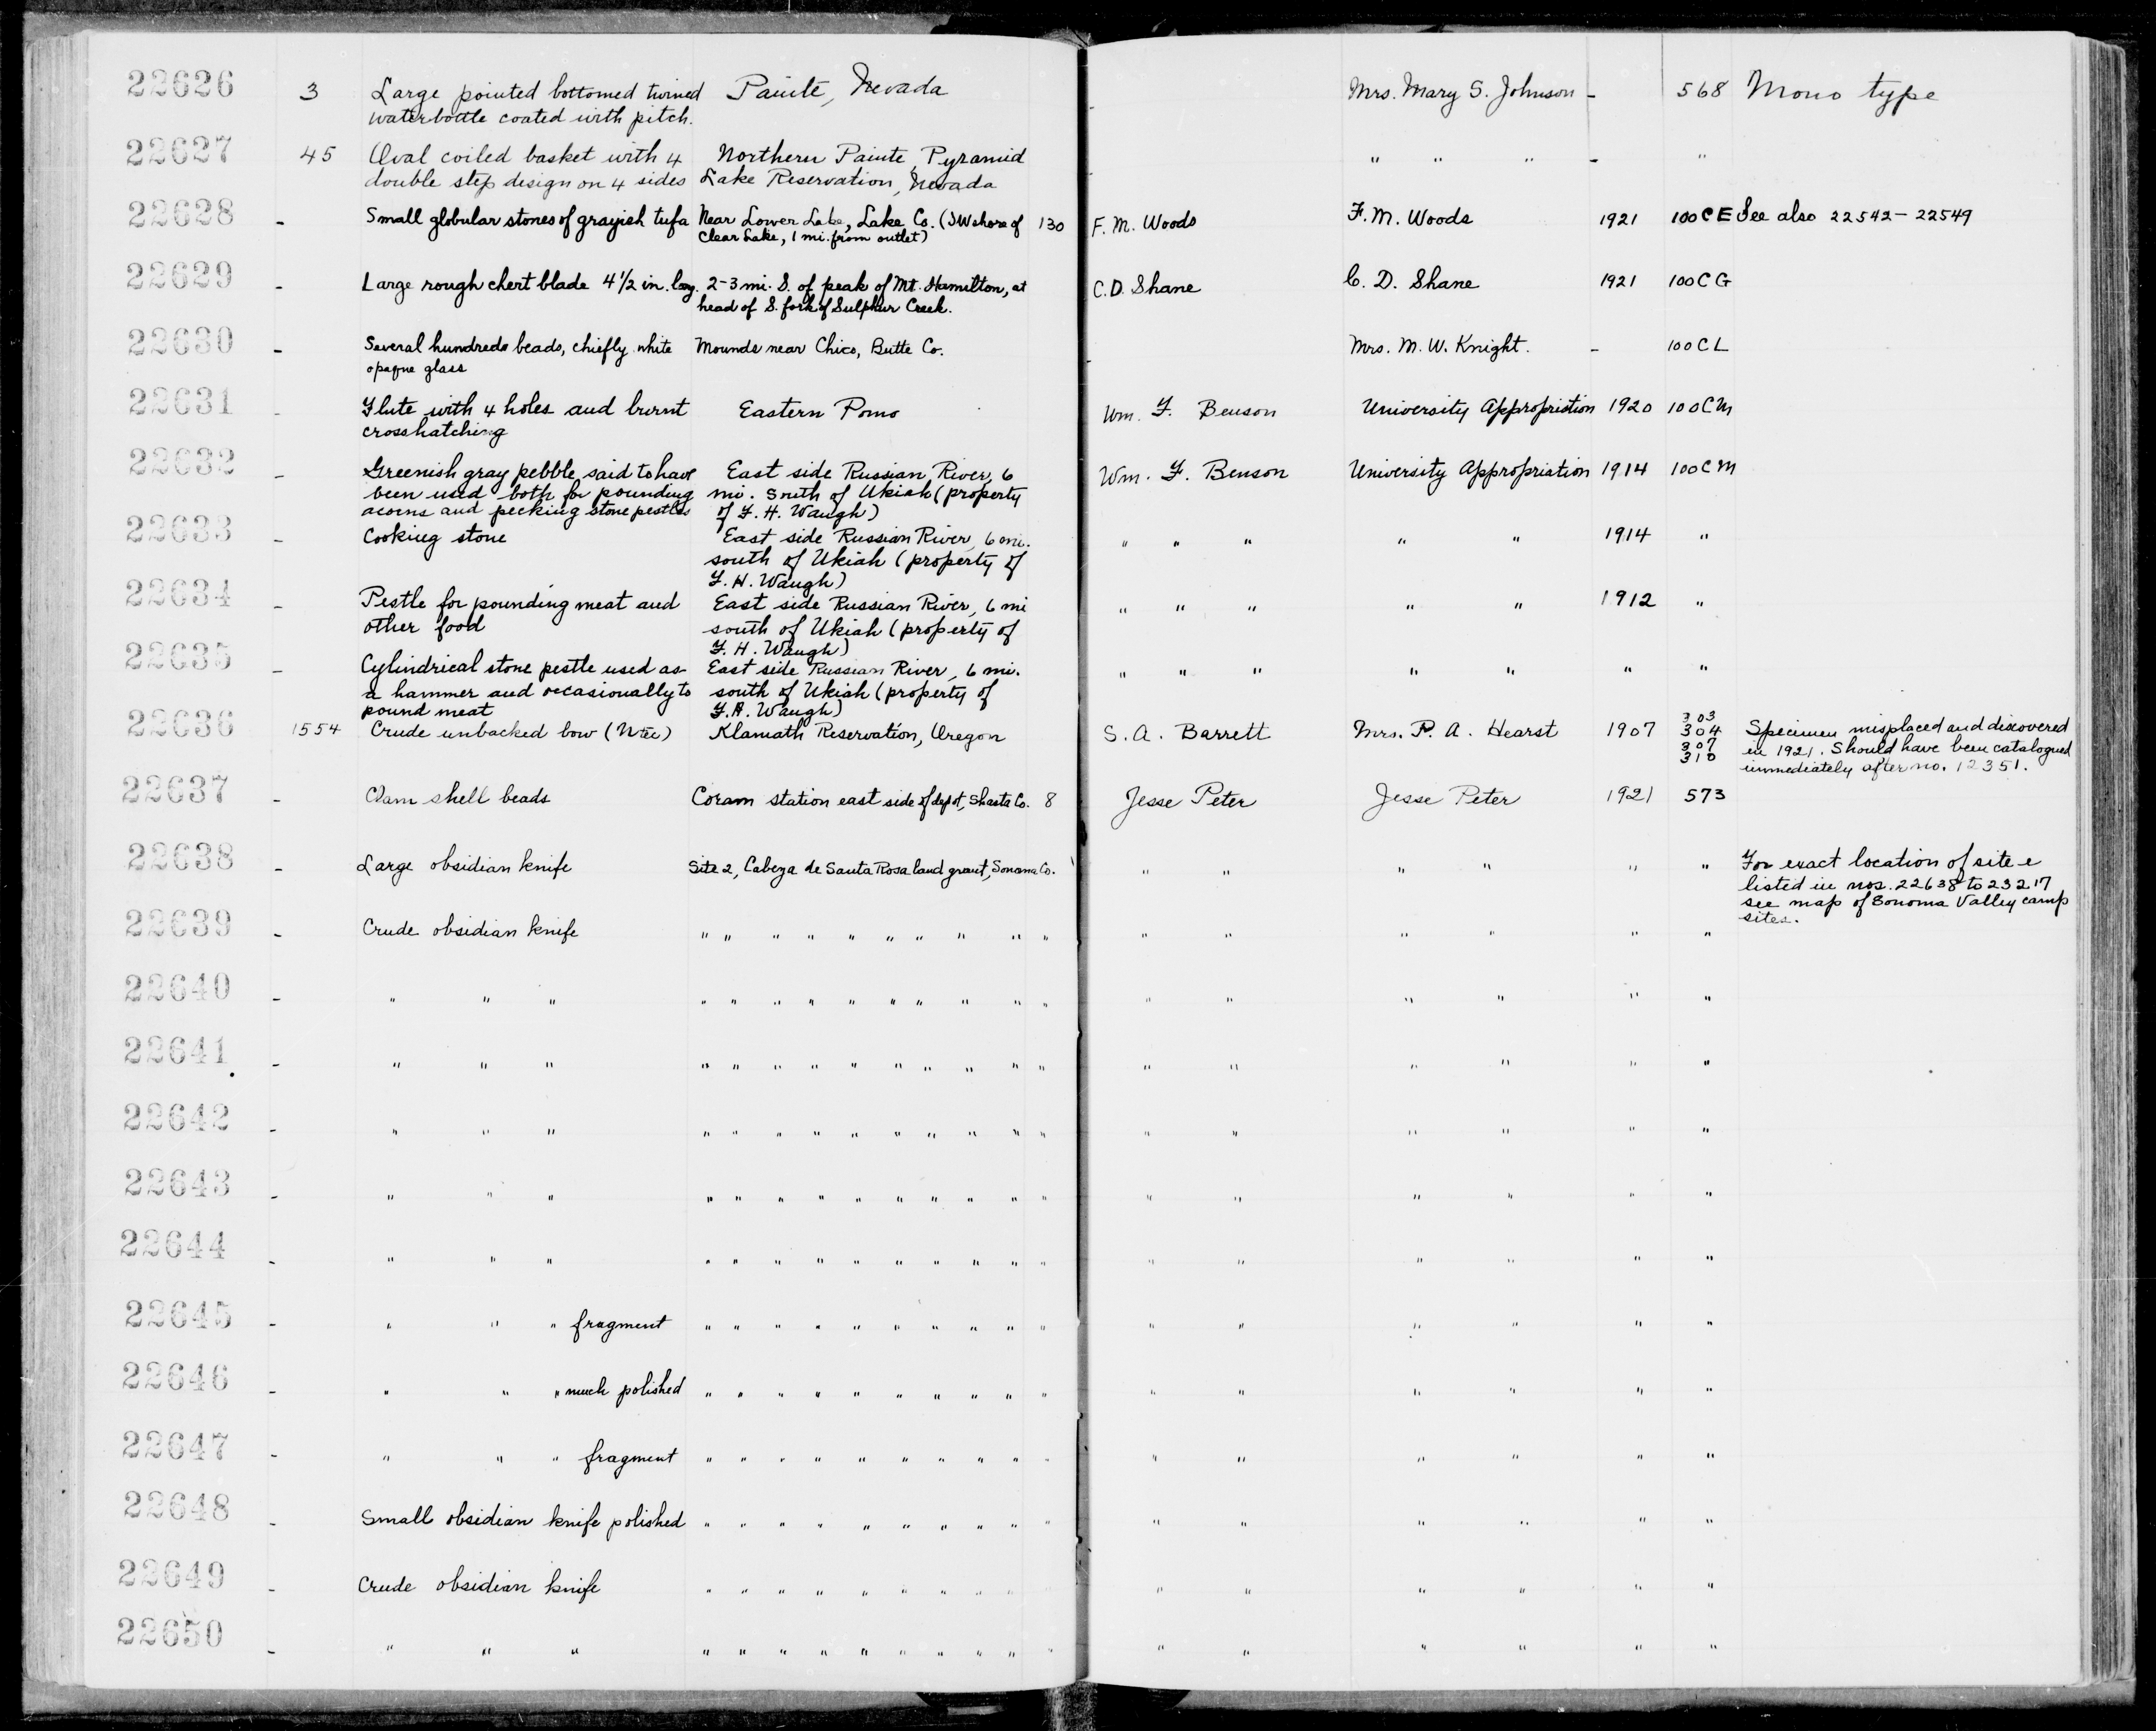 22626 3 Large pointed bottomed twined Paiute, Nevada - Mrs. Mary S. Johnson - 568 Mono type
waterbottle coated with pitch.
22627 45 Oval coiled basket with 4 Northern Paiute, Pyramid - " " " - "
double step design on 4 sides Lake Reservation, Nevada
22628 - Small globular stones of grayish tufa Near Lower Lake, Lake Co. (SW shore of 130 F. M. Woods F. M. Woods 1921 100CE See also 22542-22549
Clear Lake, 1 mi. from outlet)
22629 - Large rough chert blade 4 1/2 in. long. 2-3 mi. S. of peak of Mt. Hamilton, at C. D. Shane C. D. Shane 1921 100CG
head of S. fork of Sulphur Creek.
22630 - Several hundreds beads, chiefly white Mounds near Chico, Butte Co. - Mrs. M. W. Knight. - 100CL
opaque glass
22631 - Flute with 4 holes and burnt Eastern Pomo Wm. F. Benson University Appropriation 1920 100CM
crosshatching
22632 - Greenish gray pebble, said to have East side Russian River, 6 Wm. F. Benson University Appropriation 1914 100CM
been used both for pounding mi. South of Ukiah (property
acorns and pecking stone pestles of F. H. Waugh)
22633 - Cooking stone East side Russian River, 6 mi. " " " " " 1914 "
south of Ukiah (property of
F. H. Waugh)
22634 - Pestle for pounding meat and East side Russian River, 6 mi " " " " " 1912 "
other food south of Ukiah (property of
F. H. Waugh)
22635 - Cylindrical stone pestle used as East side Russian River, 6 mi. " " " " " " "
a hammer and occasionally to south of Ukiah (property of
pound meat F. H. Waugh)
22636 1554 Crude unbacked bow Klamath Reservation, Oregon S. A. Barrett Mrs. P. A. Hearst 1907 303 304 307 310 Specimen misplaced and discovered
in 1921. Should have been catalogued
immediately after no. 12351.
22637 - Clam shell beads Coram station east side of depot, Shasta Co. 8 Jesse Peter Jesse Peter 1921 573
22638 - Large obsidian knife Site 2, Cabeza de Santa Rosa land grant, Sonoma Co. " " " " " " For exact location of site
listed in nos. 22638 to 23217
see map of Sonoma Valley camp
sites.
22639 - Crude obsidian knife " " " " " " " " " " " " " " " "
22640 - " " " " " " " " " " " " " " " " " " "
22641 - " " " " " " " " " " " " " " " " " " "
22642 - " " " " " " " " " " " " " " " " " " "
22643 - " " " " " " " " " " " " " " " " " " "
22644 - " " " " " " " " " " " " " " " " " " "
22645 - " " " fragment " " " " " " " " " " " " " " " "
22646 - " " " much polished " " " " " " " " " " " " " " " "
22647 - " " " fragment " " " " " " " " " " " " " " " "
22648 - Small obsidian knife polished " " " " " " " " " " " " " " " "
22649 - Crude obsidian knife " " " " " " " " " " " " " " " "
22650 - " " " " " " " " " " " " " " " " " " "